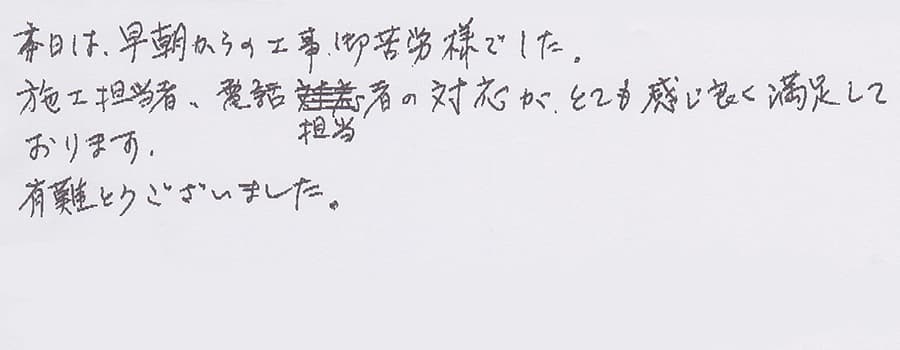 本日は、早朝からの工事、御苦労様でした。
施工担当者、電話担当者の対応が、とても感じ良く満足して
おります。
有難とうございました。